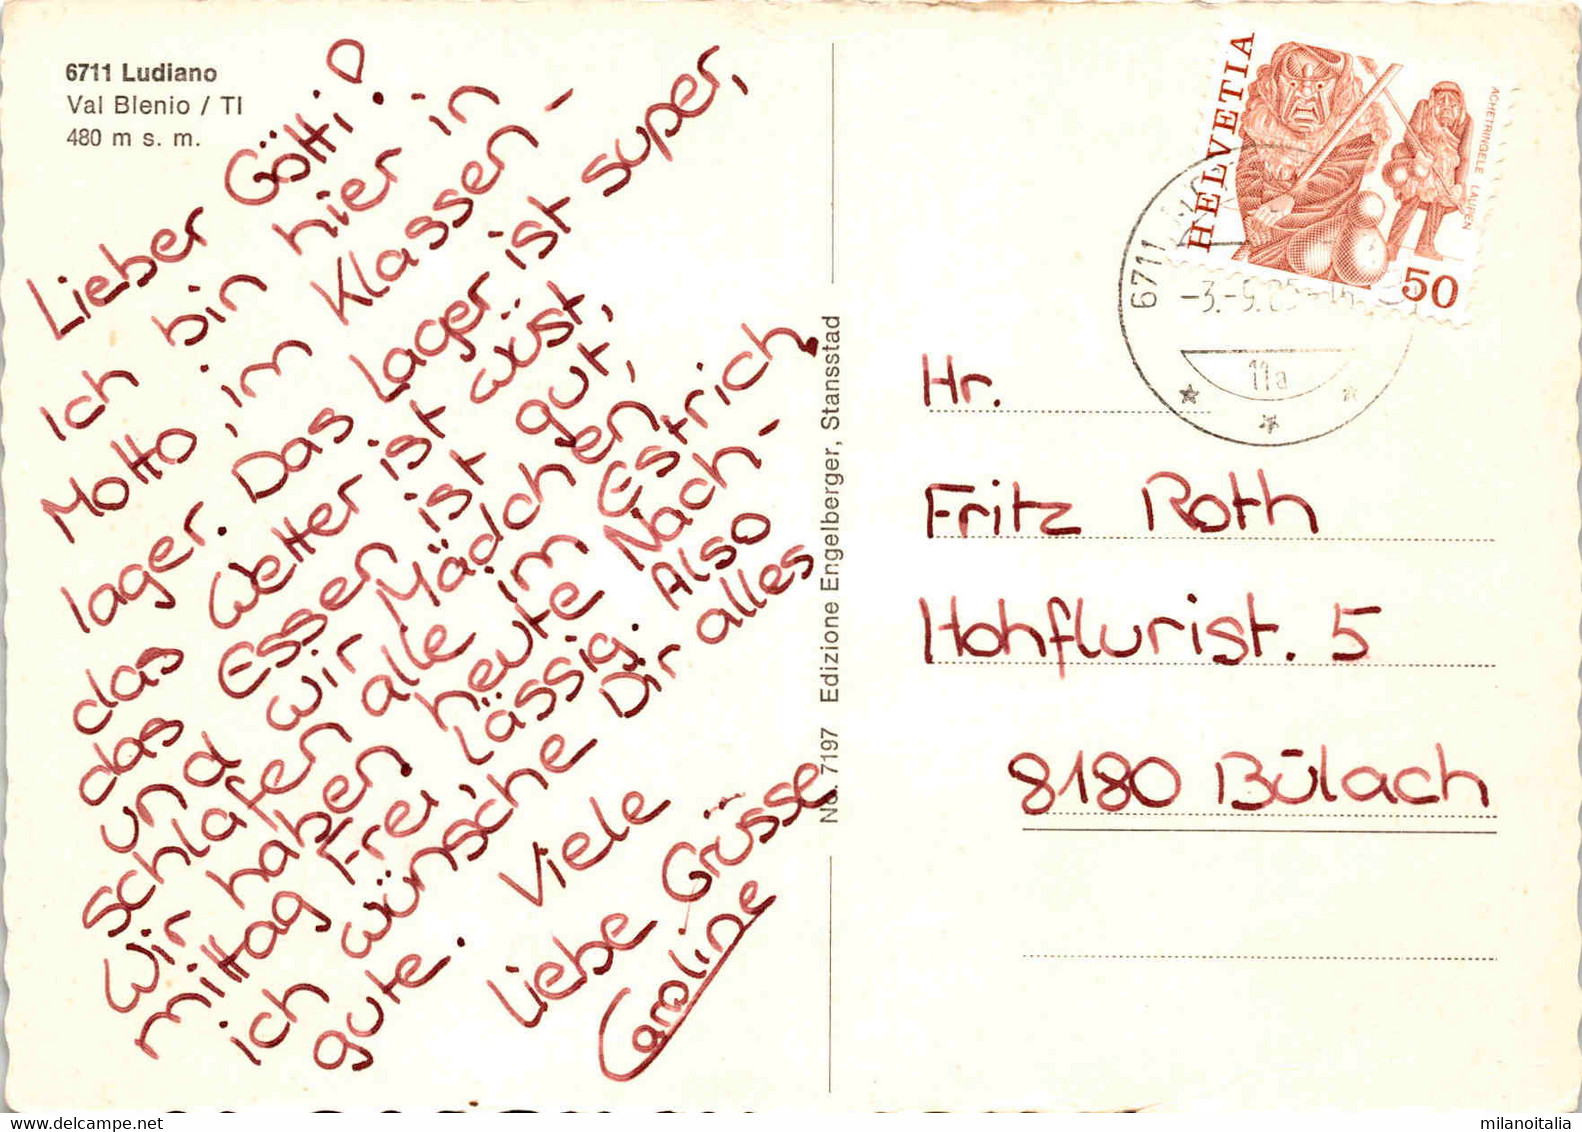 6711 Ludiano
Val Blenio / TI
480 m s. m.
Lieber Götti!
Ich bin hier in
Motto, im Klassen-
lager. Das Lager ist super,
das Wetter ist wüst,
das Essen ist gut,
und wir Mädchen
schlafen alle im Estrich.
Wir haben heute Nach-
mittag Frei, Lässig. Also
ich wünsche Dir alles
gute. Viele
Liebe Grüsse
Caroline
No. 7197 Edizione Engelberger, Stansstad
HELVETIA
ACHETRINGELE LAUPEN
50
6711
-3.-9.85-
11a
Hr.
Fritz Roth
Hohflurist. 5
8180 Bülach
milanoitalia